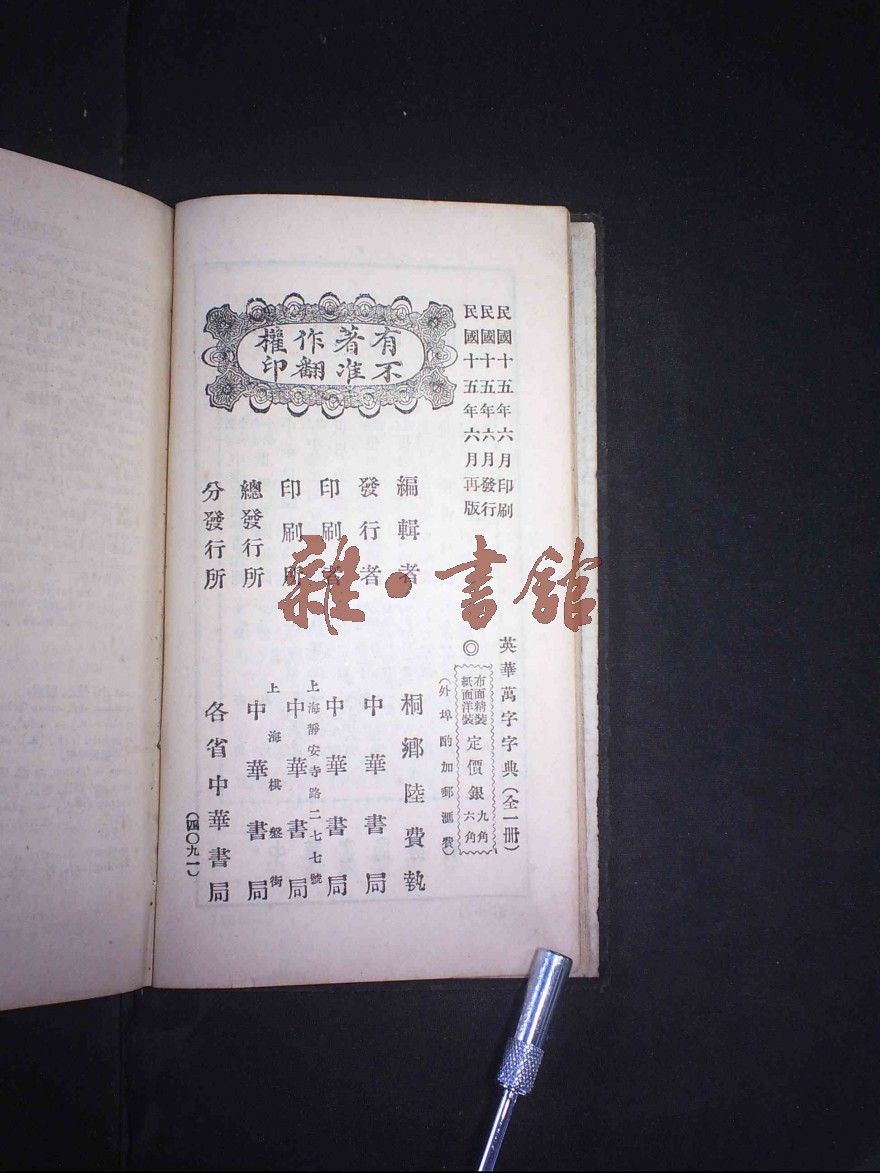 民國十五年六月印刷
民國十五年六月發行
民國十五年六月再版
有著作權
不准翻印
英華萬字字典（全一冊）
◎
布面精裝
紙面洋裝
定價銀
九角
六角
（外埠酌加郵滙費）
編輯者 桐鄉陸費執
發行者 中華書局
印刷者 中華書局
印刷所 上海靜安寺路二七七號 中華書局
總發行所 上海棋盤街 中華書局
分發行所 各省中華書局
（四〇九一）
雜·書館